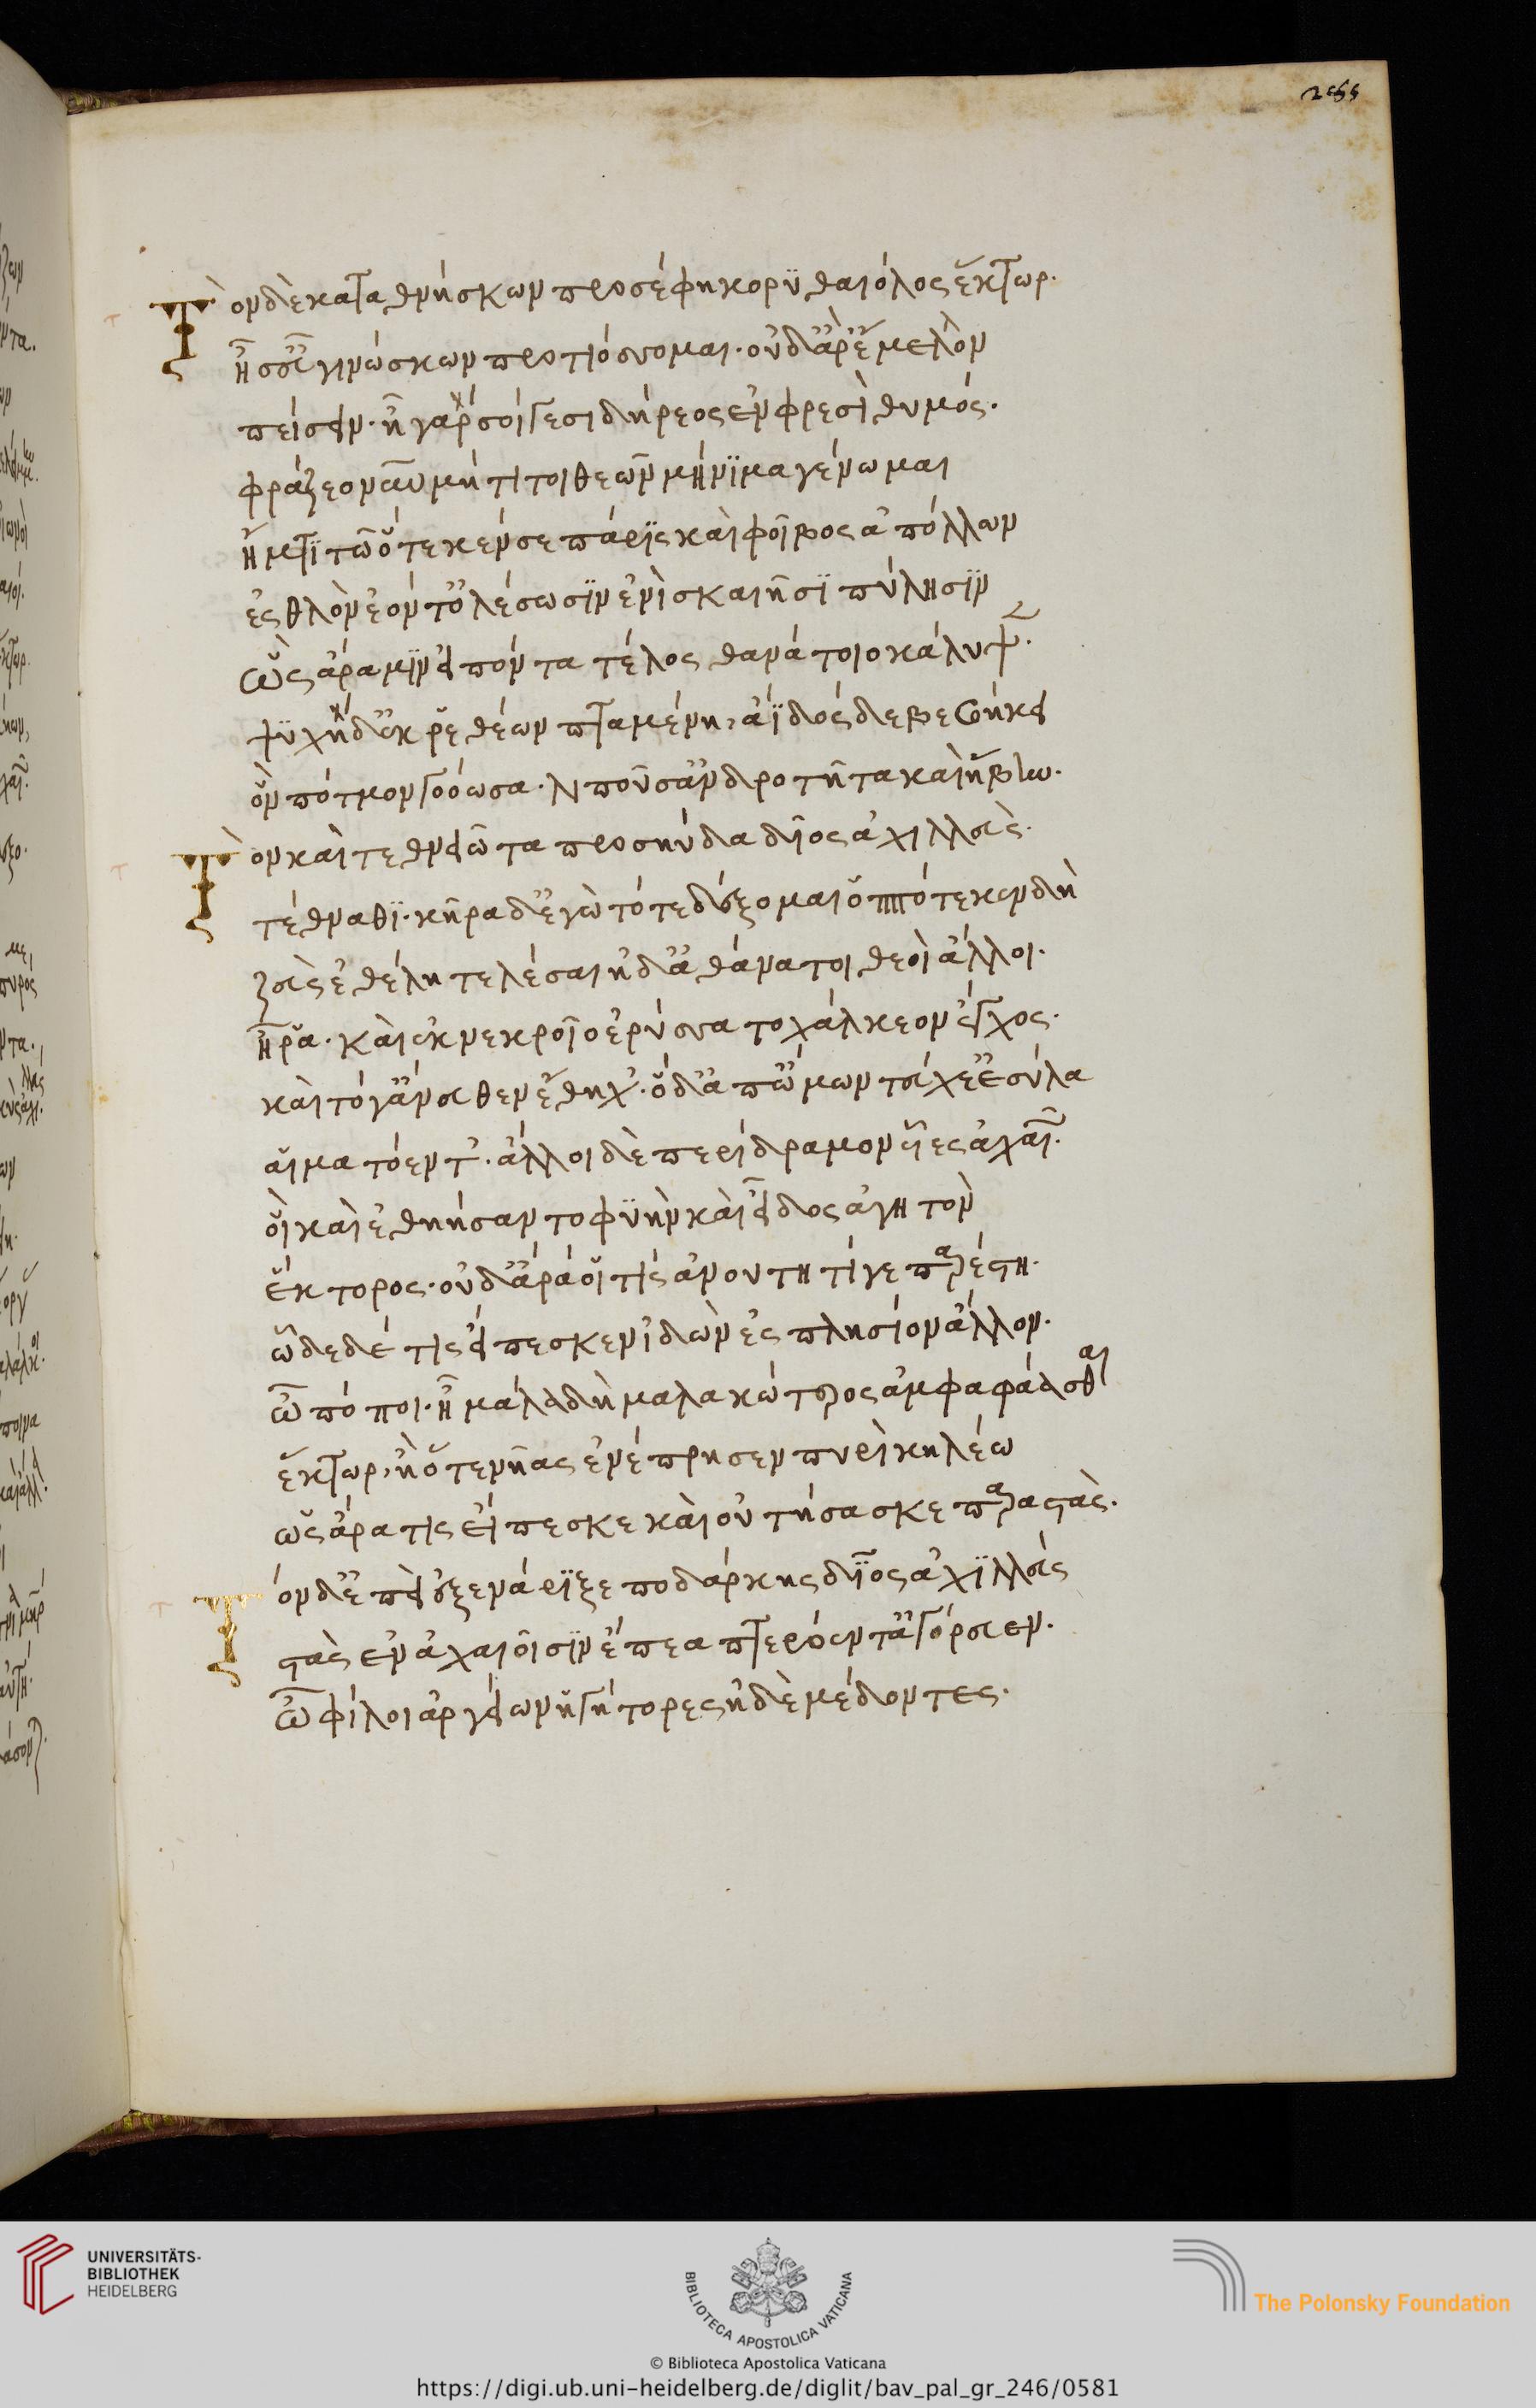 Τὸν δὲ καταθνήσκων προσέφη κορϋθαιόλος ἕκτωρ.
ἦ σ' εὖ γινώσκων προτιόσσομαι. οὐδ' ἄρ' ἔμελλον
πείσειν. ἦ γὰρ σοίγε σιδήρεος ἐν φρεσὶ θυμός.
φράζεο νῦν μή τι τοι θεῶν μήνϊμα γένωμαι
ἤματϊ τῶ ὅτε κέν σε πάρϊς καὶ φοῖβος ἀπόλλων
ἐσθλὸν ἐόντ' ὀλέσωσϊν ἐνὶ σκαιῆσϊ πύλησϊν
ὣς ἄρα μϊν εἰπόντα τέλος θανάτοιο κάλυψε.
ψϋχὴ δ' ἐκ ῥεθέων πταμένη, ἄϊδος δὲ βεβήκει
ὃν πότμον γοόωσα. λιποῦσ' ἀνδροτῆτα καὶ ἥβην.
Τὸν καὶ τεθνειῶτα προσηύδα δῖος ἀχιλλεύς.
τέθναθϊ. κῆρα δ' ἐγὼ τότε δέξομαι ὁππότε κεν δὴ
ζεὺς ἐθέλη τελέσαι ἠδ' ἀθάνατοι θεοὶ ἄλλοι.
ἦ ῥα. καὶ ἐκ νεκροῖο ἐρύσσατο χάλκεον ἔγχος.
καὶ τόγ' ἄνευθεν ἔθηχ'. ὁ δ' ἀπ' ὤμων τεύχε' ἐσύλα
αἱματόεντ'. ἄλλοι δὲ περίδραμον υἷες ἀχαιῶν.
οἳ καὶ ἐθηήσαντο φϋὴν καὶ εἶδος ἀγητὸν
ἕκτορος. οὐδ' ἄρα οἵ τις ἀνουτητί γε παρέστη.
ὧδε δέ τις εἴπεσκεν ἰδὼν ἐς πλησίον ἄλλον.
ὦ πόποι. ἦ μάλα δὴ μαλακώτερος ἀμφαφάασθαι
ἕκτωρ, ἢ ὅτε νῆας ἐνέπρησεν πυρὶ κηλέω
ὣς ἄρα τις εἴπεσκε καὶ οὐτήσασκε παραστάς.
Τὸν δ' ἐπεὶ ἐξενάρϊξε ποδάρκης δῖος ἀχϊλλεύς
στὰς ἐν ἀχαιοῖσϊν ἔπεα πτερόεντ' ἀγόρευεν.
ὦ φίλοι ἀργείων ἡγήτορες ἠδὲ μέδοντες.
UNIVERSITÄTS-
BIBLIOTHEK
HEIDELBERG
BIBLIOTECA APOSTOLICA VATICANA
The Polonsky Foundation
© Biblioteca Apostolica Vaticana
https://digi.ub.uni-heidelberg.de/diglit/bav_pal_gr_246/0581